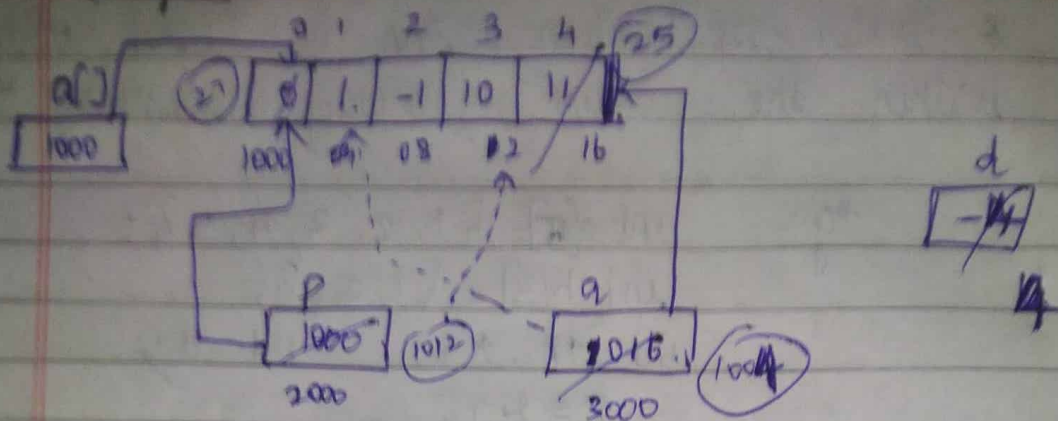 0 1 2 3 4 25
a[] 1 -1 10 11
1000 1000 08 12 16
d
p q
1000 1012 1016 1004
2000 3000